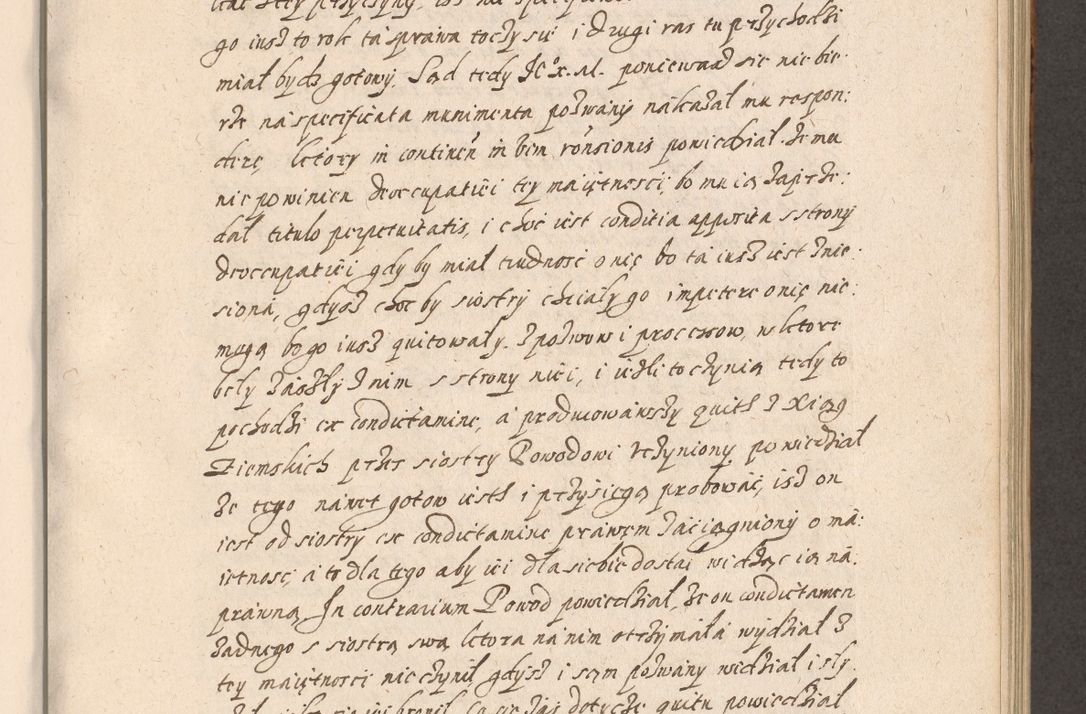 go iusz to rok ta sprawa toczy sie i drugi ras tu przychodzi
miał bydz gotowy. Sąd tedy JE° x. M. poniewaz sie nie bie
rze na specificata munimenta pozwany nakazał mu respon:
dere, ktory in continen in bem ronsionis powiedział Ze mu
nie powinien deoccupatiei tey maiętnosci, bo mu ią zaprze:
dał titulo perpetuitatis, i choc iest conditia apposita s strony
deoccupatiei gdy by miał trudnosc o nię bo ta iusz iest znie
siona, gdysz choc by siostry chciały go impetere o nię nie:
mogą bo go iusz quitowały. z pozwow i processow, w ktore
beły zaiszły z nim s strony niei, i iezli to czynią tedy to
pochodzi ex condictamine, a produiowawszy quith z Xiąg
Ziemskich przez siostry Powodowi vczyniony powiedział
że tego nawet gotow iesth i przysięgą probować, isz on
iest od siostry ex condictamine prawem zaciągniony o ma:
iętnosc, a to dla tego aby iei dla siebie dostał widząc ią na.
prawną. In contrarium Powod powiedział, że on condictamen
żadnego s siostrą swą ktora na nim otrzymała wydział z
tey maiętnosci nie czynił gdysz i sąm pozwany widział i sły